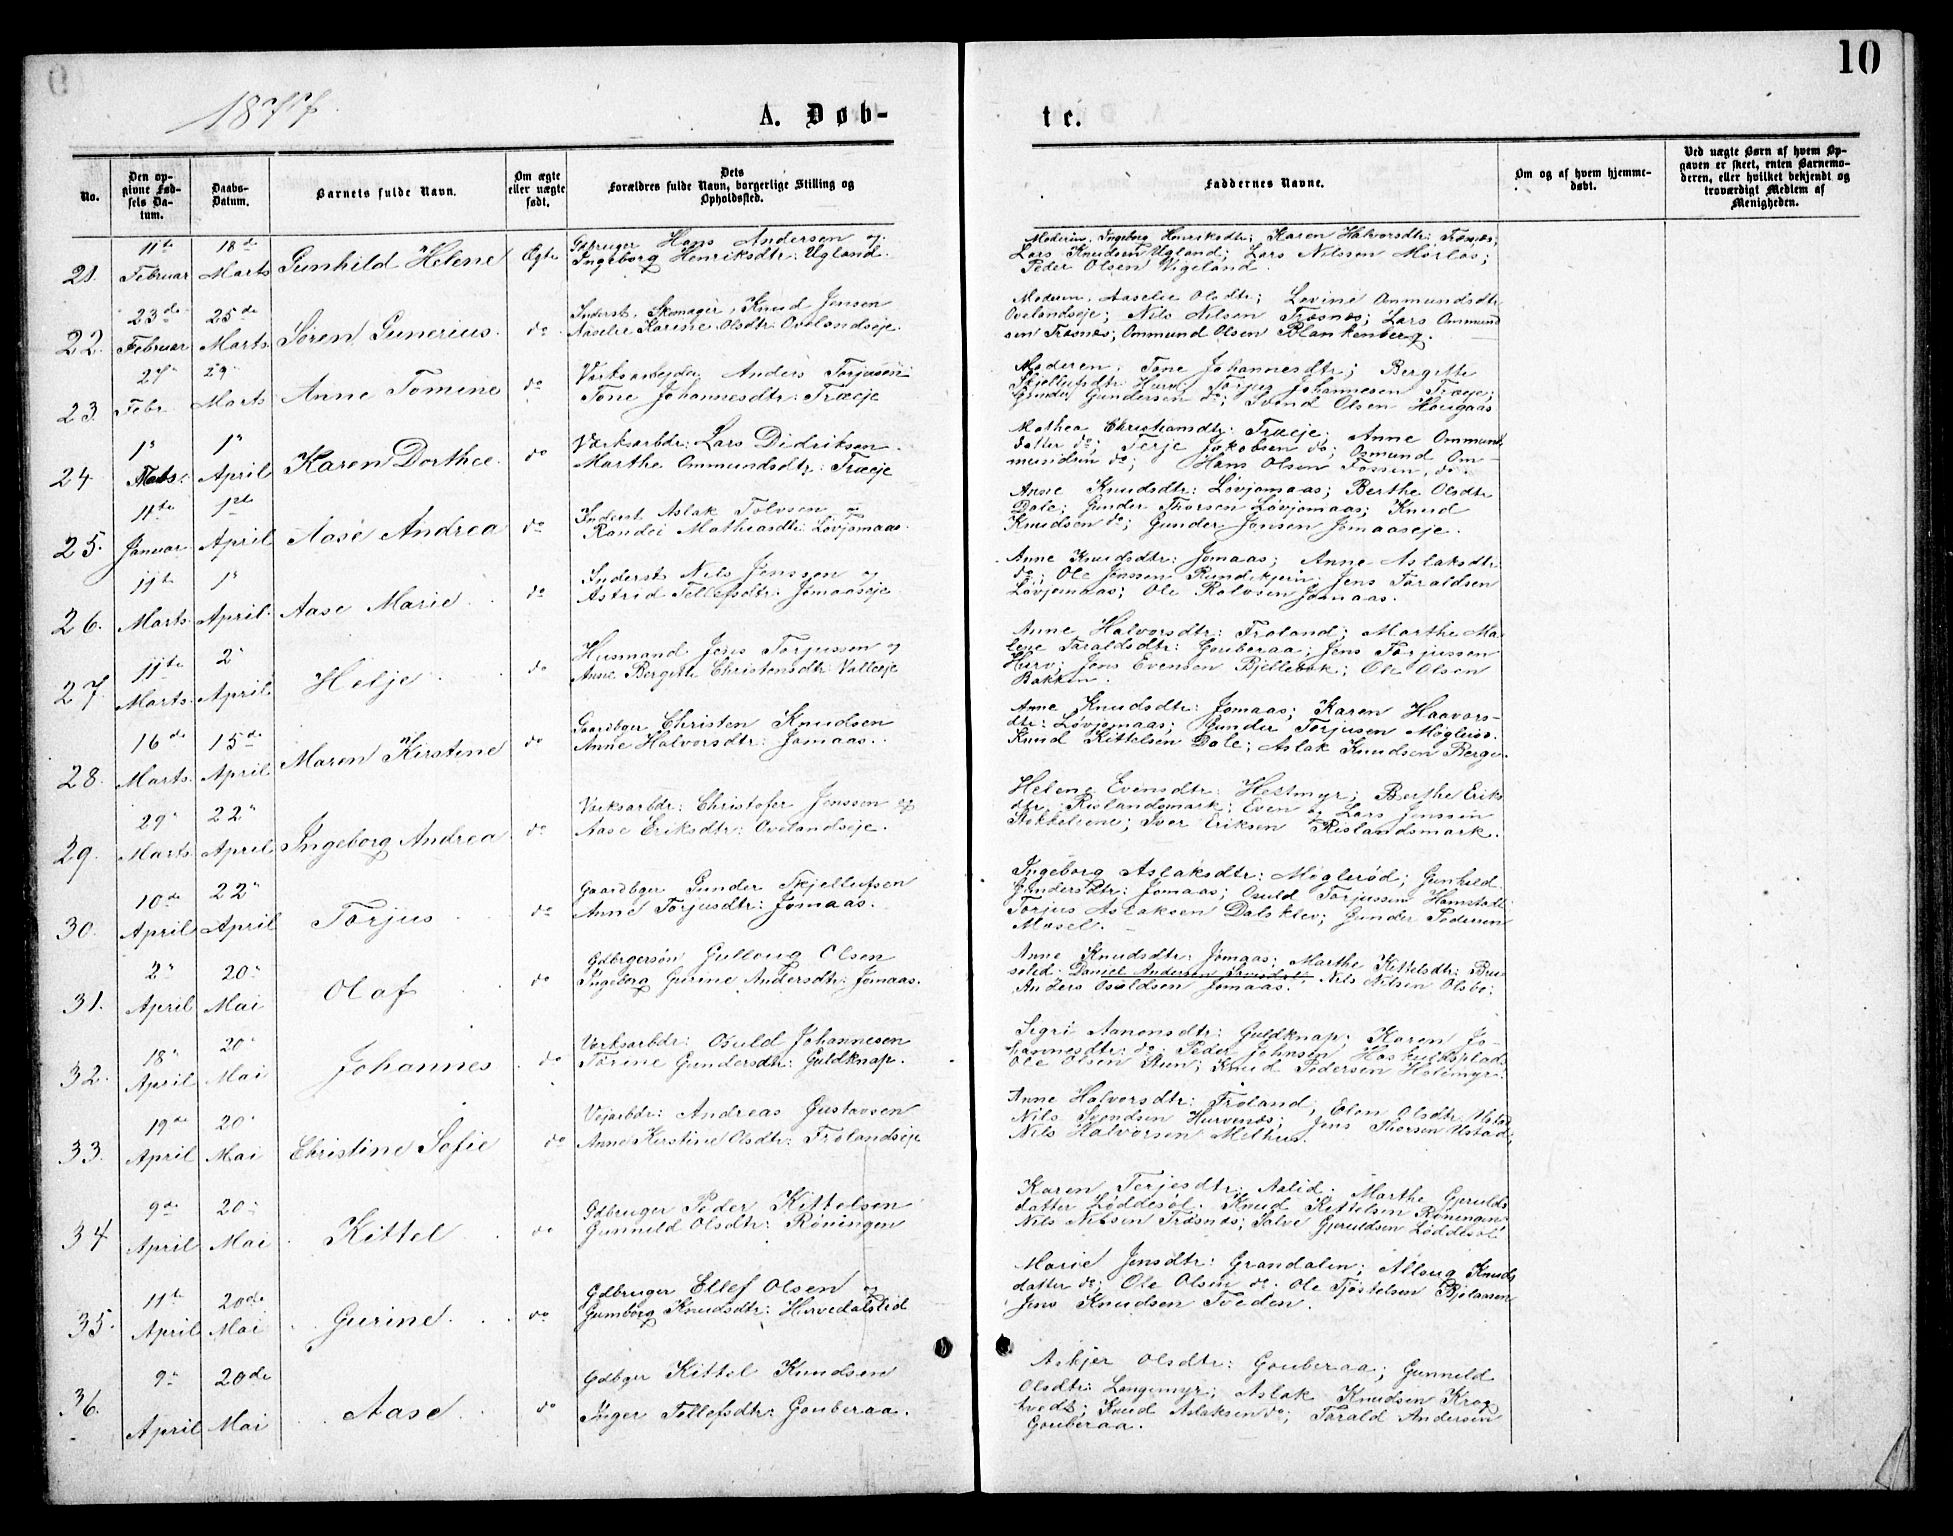 10
1877.
A. Døb-
te.
No.
Den op-
givne Fød-
sels Da-
tum.
Daabs-
Datum.
Barnets fulde Navn.
Om ægte
eller uægte
født.
Dets
Forældres fulde Navn, borgerlige Stilling og
Opholdssted.
Faddernes Navne.
Om og af hvem hjemme-
døbt.
Ved uægte Børn af hvem Op-
gaven er skeet, enten Barnemo-
deren, eller hvilket bekjendt og
troværdigt Medlem af
Menigheden.
21. 11te Februar 18de Marts Gunhild Helene Ægte
Gdbruger Hans Andersen og
Ingeborg Henriksdtr: Ugland.
Moderen, Ingeborg Henriksdtr; Karen Halvorsdtr: Træsnæs;
Lars Knudsen Ugland; Lars Nilssen
Peder Olsen Vigeland.
22. 23de Februar 25de Marts Søren Gunerius. do
Inderst, Skomager, Knud Jensen
Aaselie Karine Olsdtr: Ovelandseje.
Moderen, Aaselie Olsdtr; Lovine Ommundsdtr
Ovelandseje; Nils Nilsen Træsnæs; Lars Ommund
sen Træsnæs; Ommund Olsen Blankenberg.
23. 27" Febr. 29" Marts Anne Tomine do
Værksarbejder Anders Torjusen
Tone Johannesdtr: Træeje
Moderen, Tone Johannesdtr; Bergitte
Skjellufsdtr: Hurv; Torjus Johannesen Træeje;
Gunder Gundersen do; Svend Olsen Hougaas
24. 1" Marts. 1" April Karen Dorthee. do
Værksarbdr: Lars Didriksen
Marthe Ommundsdtr: Træeje
Mathea Christiansdtr: Træeje; Anne Ommunds
datter do; Terje Jakobsen do; Osmund Om-
mundsen do; Hans Olsen Fossen, do.
25. 11te Januar 1ste April Aase Andrea do
Inderst Aslak Tolvsen og
Randei Mathiasdtr: Løvjomaas.
Anne Knudsdtr: Løvjomaas; Berthe Olsdtr
Dale; Gunder Thorsen Løvjomaas; Knud
Knudsen do; Gunder Jensen Jomaaseje.
26. 11te Marts. 1" April. Aase Marie do
Inderst Nils Jenssen og
Astrid Tellefsdtr: Jomaaseje
Anne Knudsdtr: Jomaas; Anne Aslaksdtr:
do; Ole Jenssen Jens Taraldsen
Løvjomaas; Ole Rolvsen Jomaas.
27. 11te Marts. 2" April Helje do
Husmand Jens Torjussen og
Anne Bergitte Christensdtr: Valleeje
Anne Halvorsdtr: Froland; Marthe Ma
lene Taraldsdtr: Gouberaa; Jens Torjussen
Hurv; Jens Evensen Bjellebek; Ole Olsen
Bakken.
28. 16de Marts. 15de April Maren Kirstine do
Gaardbger Christen Knudsen
Anne Halvorsdtr: Jomaas.
Anne Knudsdtr: Jomaas; Karen Haavors-
dtr: Løvjomaas; Gunder Torjusen
Knud Kittelsen Dale; Aslak Knudsen Berge.
29. 29" Marts. 22" April Ingeborg Andrea do
Værksarbdr: Christofer Jenssen og
Aase Eriksdtr: Ovelandseje.
Helene Evensdtr: Hestmyr; Berthe Eriks
dtr: Rislandsmark; Even og Lars Jenssen
Stokkeliene; Iver Eriksen Rislandsmark.
30. 10de April 22" April Torjus do
Gaardbger Gunder Skjellufsen
Anne Torjusdtr: Jomaas.
Ingeborg Aslaksdtr: Møglerød; Gunhild
Gundersdtr: Jomaas; Osuld Torjussen
Torjus Aslaksen Dalsklev; Gunder Pedersen
Mosel.
31. 2" April 20" Mai Olaf do
Gdbrgersøn Gulloug Olsen
Ingeborg Gurine Andersdtr: Jomaas.
Anne Knudsdtr: Jomaas; Marthe Kittelsdtr: Bru
soled. Daniel Andersen Nils Nilsen Olsbo.
Anders Osuldsen Jomaas.
32. 18" April 20" Mai Johannes do
Værksarbdr: Osuld Johannesen
Torine Gundersdtr: Guldknap.
Sigri Aanonsdtr: Guldknap; Karen Jo-
hannesdtr: do. Peder Johnsen Haskuldsplads
Ole Olsen Stuen; Knud Pedersen Holtmyr.
33. 19de April 20" Mai Christine Sofie do
Vejarbdr: Andreas Gustavsen
Anne Kirstine Olsdtr: Frolandseje
Anne Halvorsdtr: Froland; Elen Olsdtr Ustad
Nils Svendsen Hurvenæs; Jens Thorsen Ustad;
Nils Halvorsen Melhus.
34 9de April 20" Mai Kittel do
Gdbruger Peder Kittelsen
Gunneld Olsdtr: Røningen
Karen Terjesdtr: Aalid. Marthe Gjerulds
datter Løddesøl. Knud Kittelsen Røningen
Nils Nilsen Træsnæs; Salve Gjeruldsen Løddesøl.
35. 11te April 20de Mai Gurine do
Gdbruger Ellef Olsen og
Gumborg Knudsdtr: Hurvedalslid
Marie Jensdtr: Grandalen; Alloug Knuds
datter do; Ole Olsen do. Ole Tjøstelsen Bjelaasen
Jens Knudsen Tveden.
36. 9" April 20de Mai Aase do
Gdbger Kittel Knudsen
Inger Tellefsdtr: Gouberaa.
Askjer Olsdtr: Gouberaa; Gunneld
Olsdtr: Langemyr; Aslak Knudsen Krog
tvedt; Knud Aslaksen do; Tarald Andersen
Gouberaa.